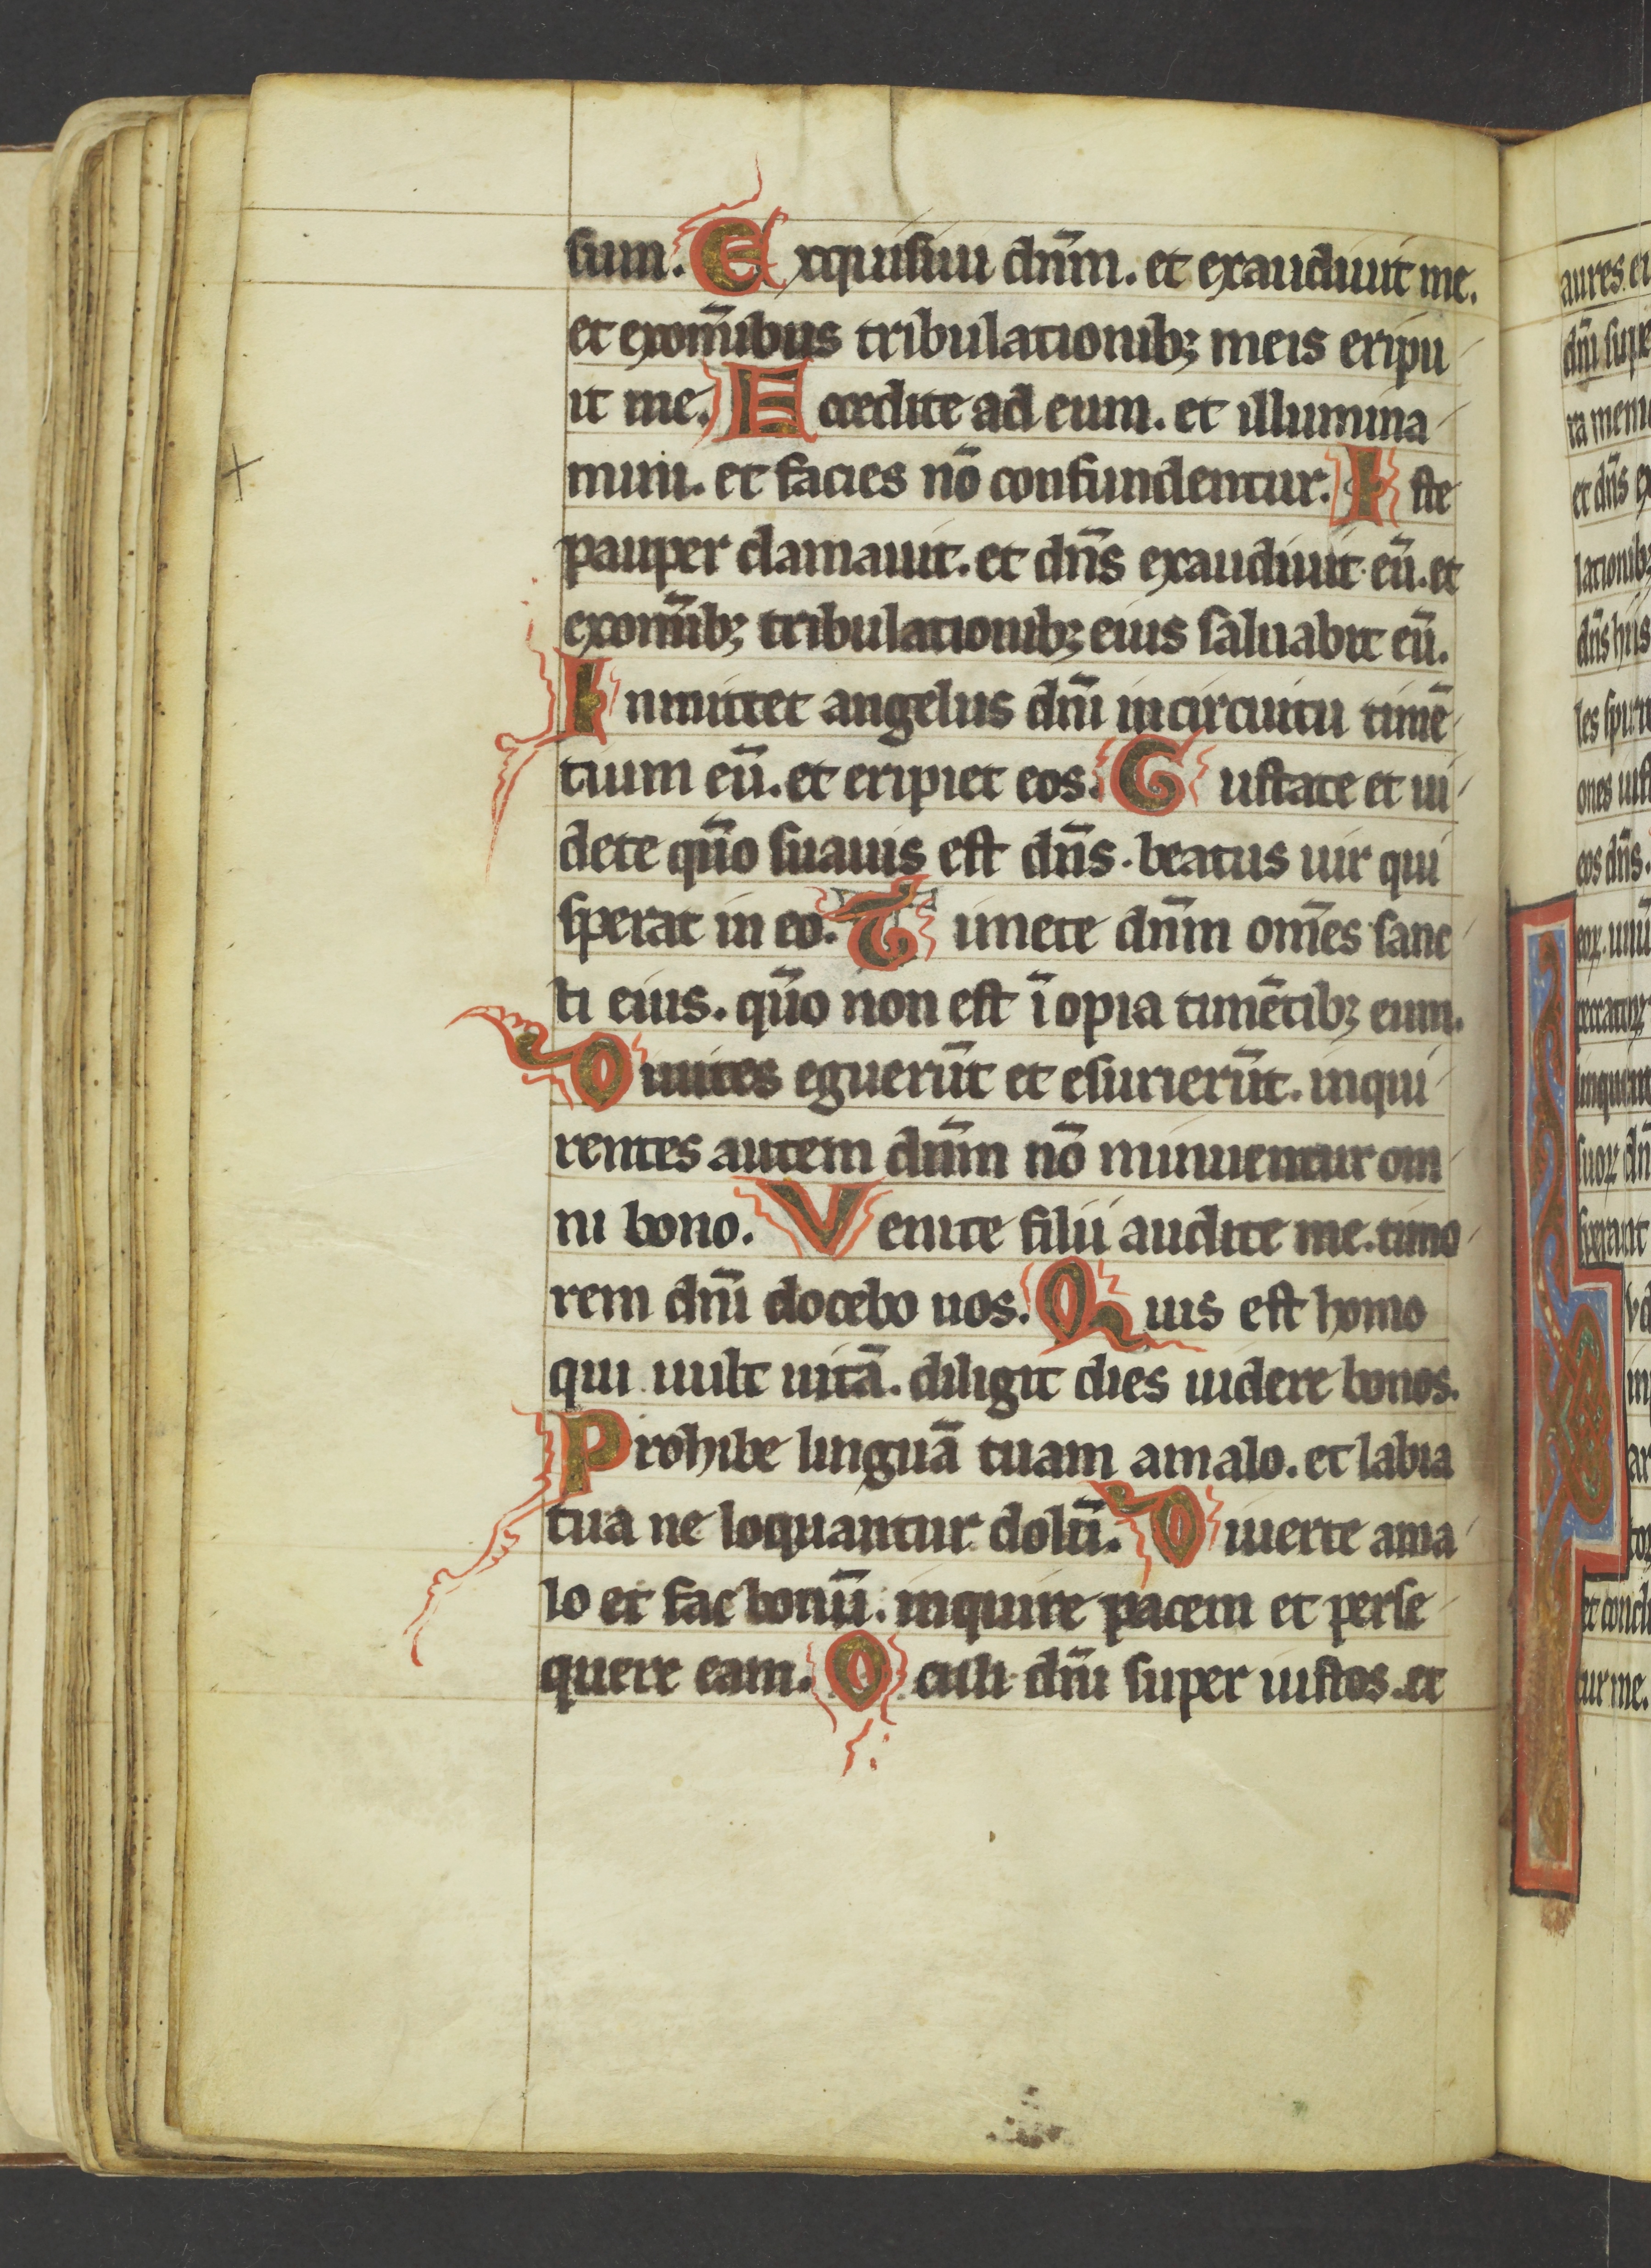 sum. Exquisiui dn̄m. et exaudiuit me.
et exom̄ibus tribulationib; meis eripu
it me. E ccedite ad eum. et illumina
mini. et facies nō confundentur. I ste
pauper clamauit. et dn̄s exaudiuit eū. et
exom̄ib; tribulationib; eius saluabit eū.
Inmittet angelus dn̄i in circuitu timē
tium eū. et eripiet eos. Gustate et ui
dete qūo suauis est dn̄s. beatus uir qui
sperat in eo. Timete dn̄m om̄es sanc
ti eius. qūo non est īopia timētib; eum.
Diuites eguerūt et esurierūt. inqui
rentes autem dn̄m nō minuentur om
ni bono. Venite filii audite me. timo
rem dn̄i docebo uos. Quis est homo
qui uult uitā. diligit dies uidere bonos.
Prohibe linguā tuam amalo. et labia
tua ne loquantur dolū. Diuerte ama
lo et fac bonū. inquire pacem et perse
quere eam. Oculi dn̄i super iustos. et
aures ei
dn̄i sup
ra mem
et dn̄s ex
lationib;
dn̄s hiis
les spiri
ones iust
eos dn̄s.
eoꝝ. unū
peccatoꝝ
linquent
suoꝝ dn̄
sperant
et concl
tur me.